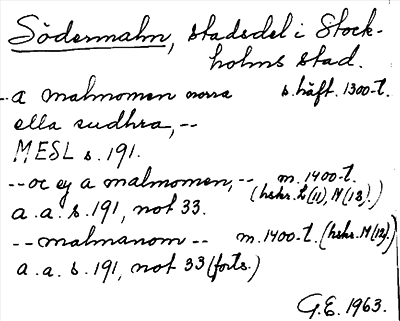 Södermalm, stadsdel i Stock-
holms stad.
--a malmomen norra s. häft. 1300-t.
ella sudhra, --
MESL s. 191.
--oc ey a malmomen, -- m. 1400-t.
(hskr. L (11), N (13).)
a. a. s. 191, not 33.
--malmanom -- m. 1400-t. (hskr. M (12).)
a. a. s. 191, not 33 (forts.)
G.E. 1963.